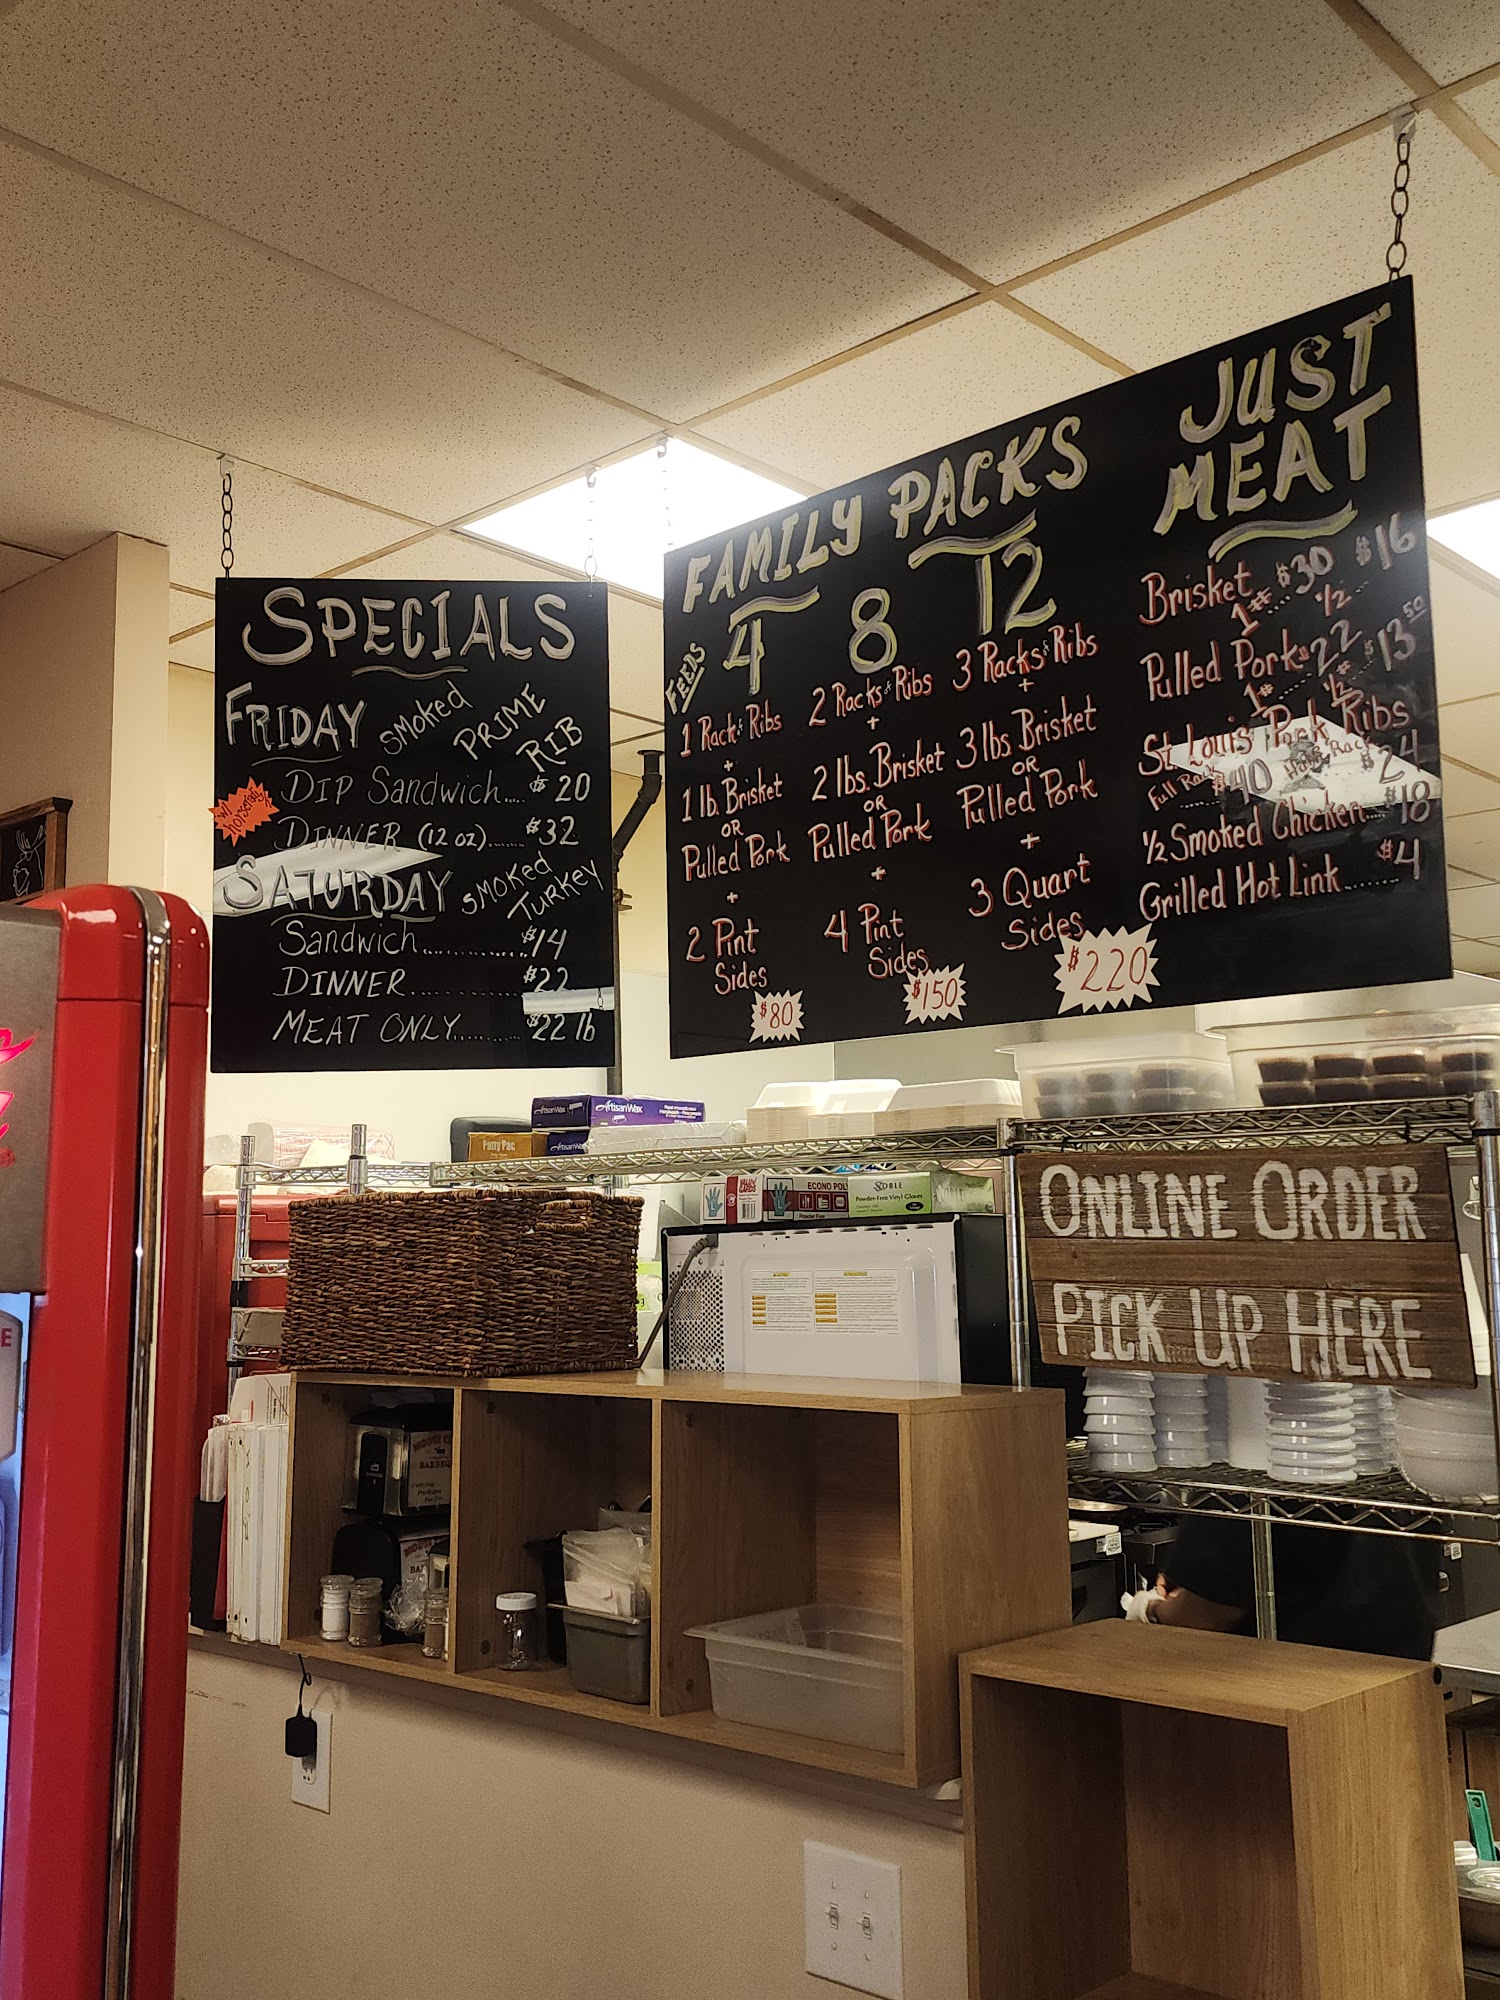 SPECIALS
FRIDAY SMOKED PRIME RIB
W/ HORSERADISH
DIP SANDWICH... $20
DINNER (12 OZ)...... $32
SATURDAY SMOKED TURKEY
SANDWICH............ $14
DINNER............. $22
MEAT ONLY.......... $22 lb
FAMILY PACKS
FEEDS
4
1 Rack of Ribs
+
1 lb. Brisket
OR
Pulled Pork
+
2 Pint
Sides
$80
8
2 Racks of Ribs
+
2 lbs. Brisket
OR
Pulled Pork
+
4 Pint
Sides
$150
12
3 Racks of Ribs
+
3 lbs Brisket
OR
Pulled Pork
+
3 Quart
Sides
$220
JUST
MEAT
Brisket
1#.... $30 1/2.... $16
Pulled Pork
1#...... 22 1/2#..... $13.50
St. Louis Pork Ribs
Full Rack ..... $40 Half Rack 24
1/2 Smoked Chicken.... $18
Grilled Hot Link....... $4
ArtisanWax
ArtisanWax
Patty Pac
ArtisanWax
ECONO POLY
Powder Free
NOBLE
Powder-Free Vinyl Gloves
ONLINE ORDER
PICK UP HERE